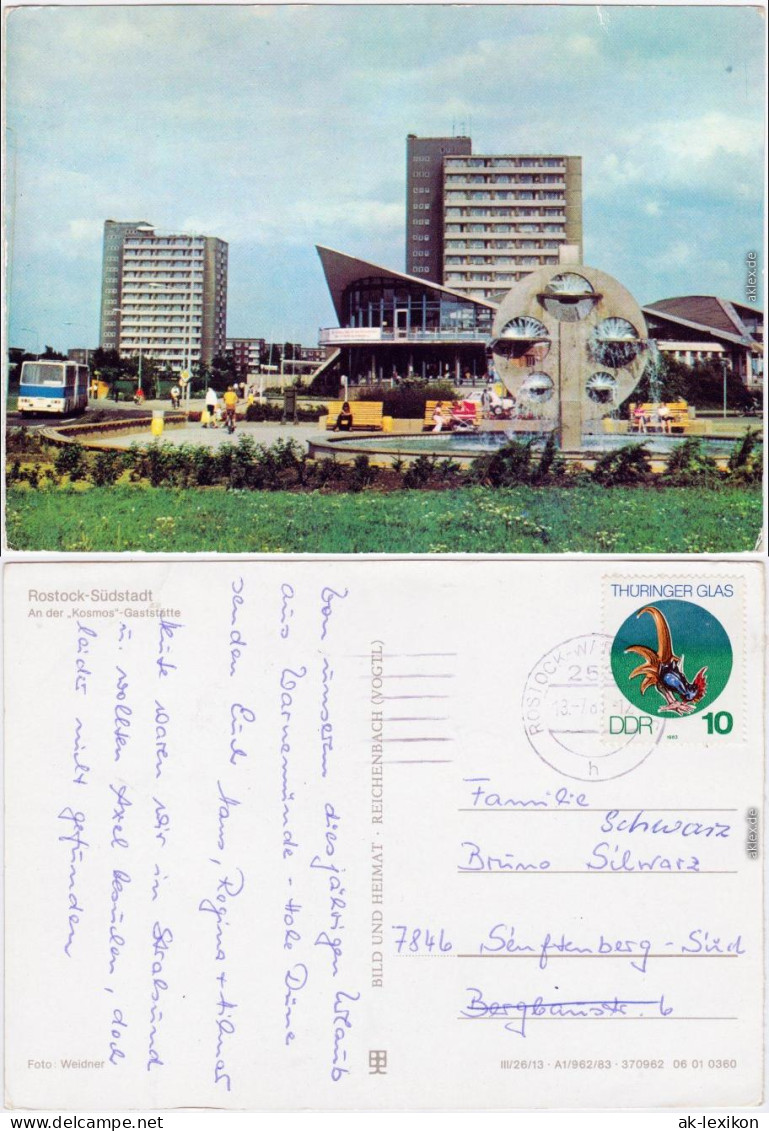 aklexikon.de
Rostock-Südstadt
An der „Kosmos"-Gaststätte
Von unserem diesjährigen Urlaub
aus Warnemünde - Hohe Düne
senden Euch Hans, Regina + Hilmar
Heute waren wir in Stralsund
u. wollten Axel besuchen, doch
leider nicht gefunden
Foto: Weidner
BILD UND HEIMAT · REICHENBACH (VOGTL)
THÜRINGER GLAS
DDR 10
1983
ROSTOCK-W
25
h
Familie
Schwarz
Bruno Silwarz
7846 Senftenberg-Süd
Bergbaustr. 6
III/26/13 · A1/962/83 · 370962 06 01 0360
aklexikon.de
www.ak-ansichtskarten.de
ak-lexikon.com